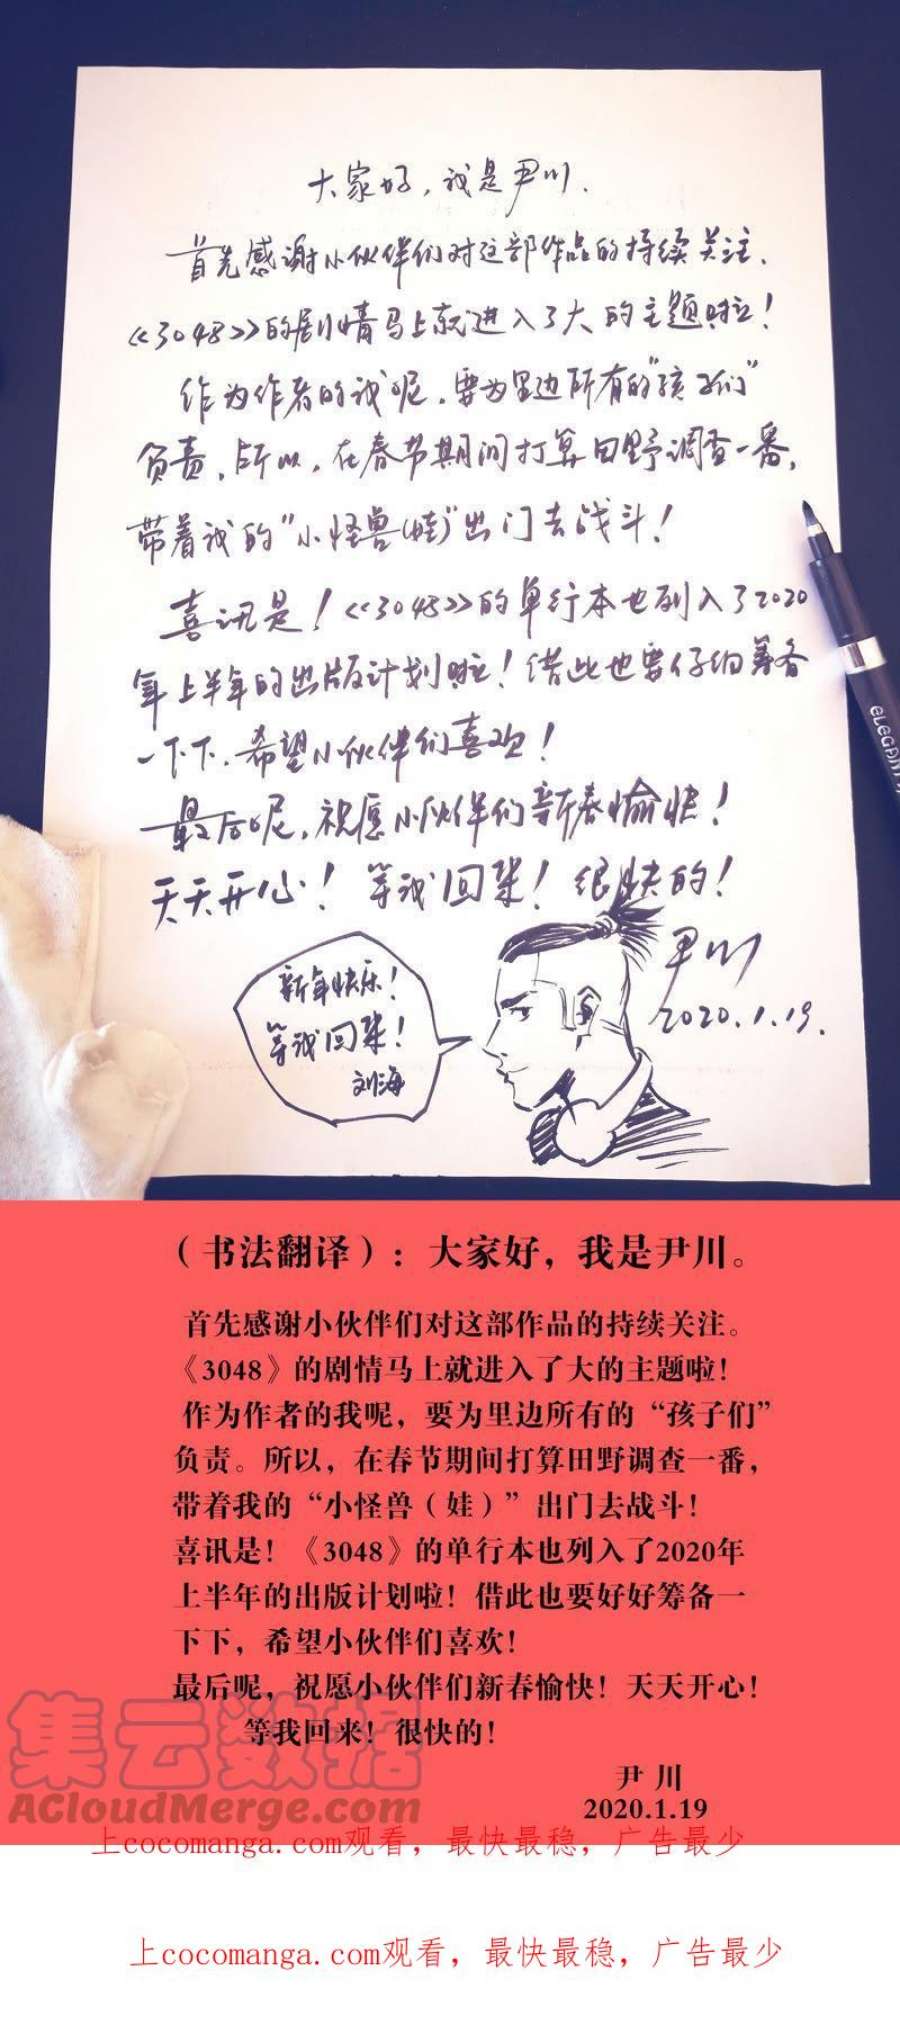 大家好，我是尹川.
首先感谢小伙伴们对这部作品的持续关注.
《3048》的剧情马上就进入了大的主题啦！
作为作者的我呢，要为里边所有的“孩子们”
负责，所以，在春节期间打算田野调查一番，
带着我的“小怪兽(娃)”出门去战斗！
喜讯是！《3048》的单行本也列入了2020
年上半年的出版计划啦！借此也要仔细筹备
一下下，希望小伙伴们喜欢！
最后呢，祝愿小伙伴们新春愉快！
天天开心！等我回来！很快的！
尹川
2020.1.19.
新年快乐！
等我回来！
刘海
eLEGANT
（书法翻译）：大家好，我是尹川。
首先感谢小伙伴们对这部作品的持续关注。
《3048》的剧情马上就进入了大的主题啦！
作为作者的我呢，要为里边所有的“孩子们”
负责。所以，在春节期间打算田野调查一番，
带着我的“小怪兽（娃）”出门去战斗！
喜讯是！《3048》的单行本也列入了2020年
上半年的出版计划啦！借此也要好好筹备一
下下，希望小伙伴们喜欢！
最后呢，祝愿小伙伴们新春愉快！天天开心！
等我回来！很快的！
尹川
2020.1.19
集云数据
ACloudMerge.com
上cocomanga.com观看，最快最稳，广告最少
上cocomanga.com观看，最快最稳，广告最少